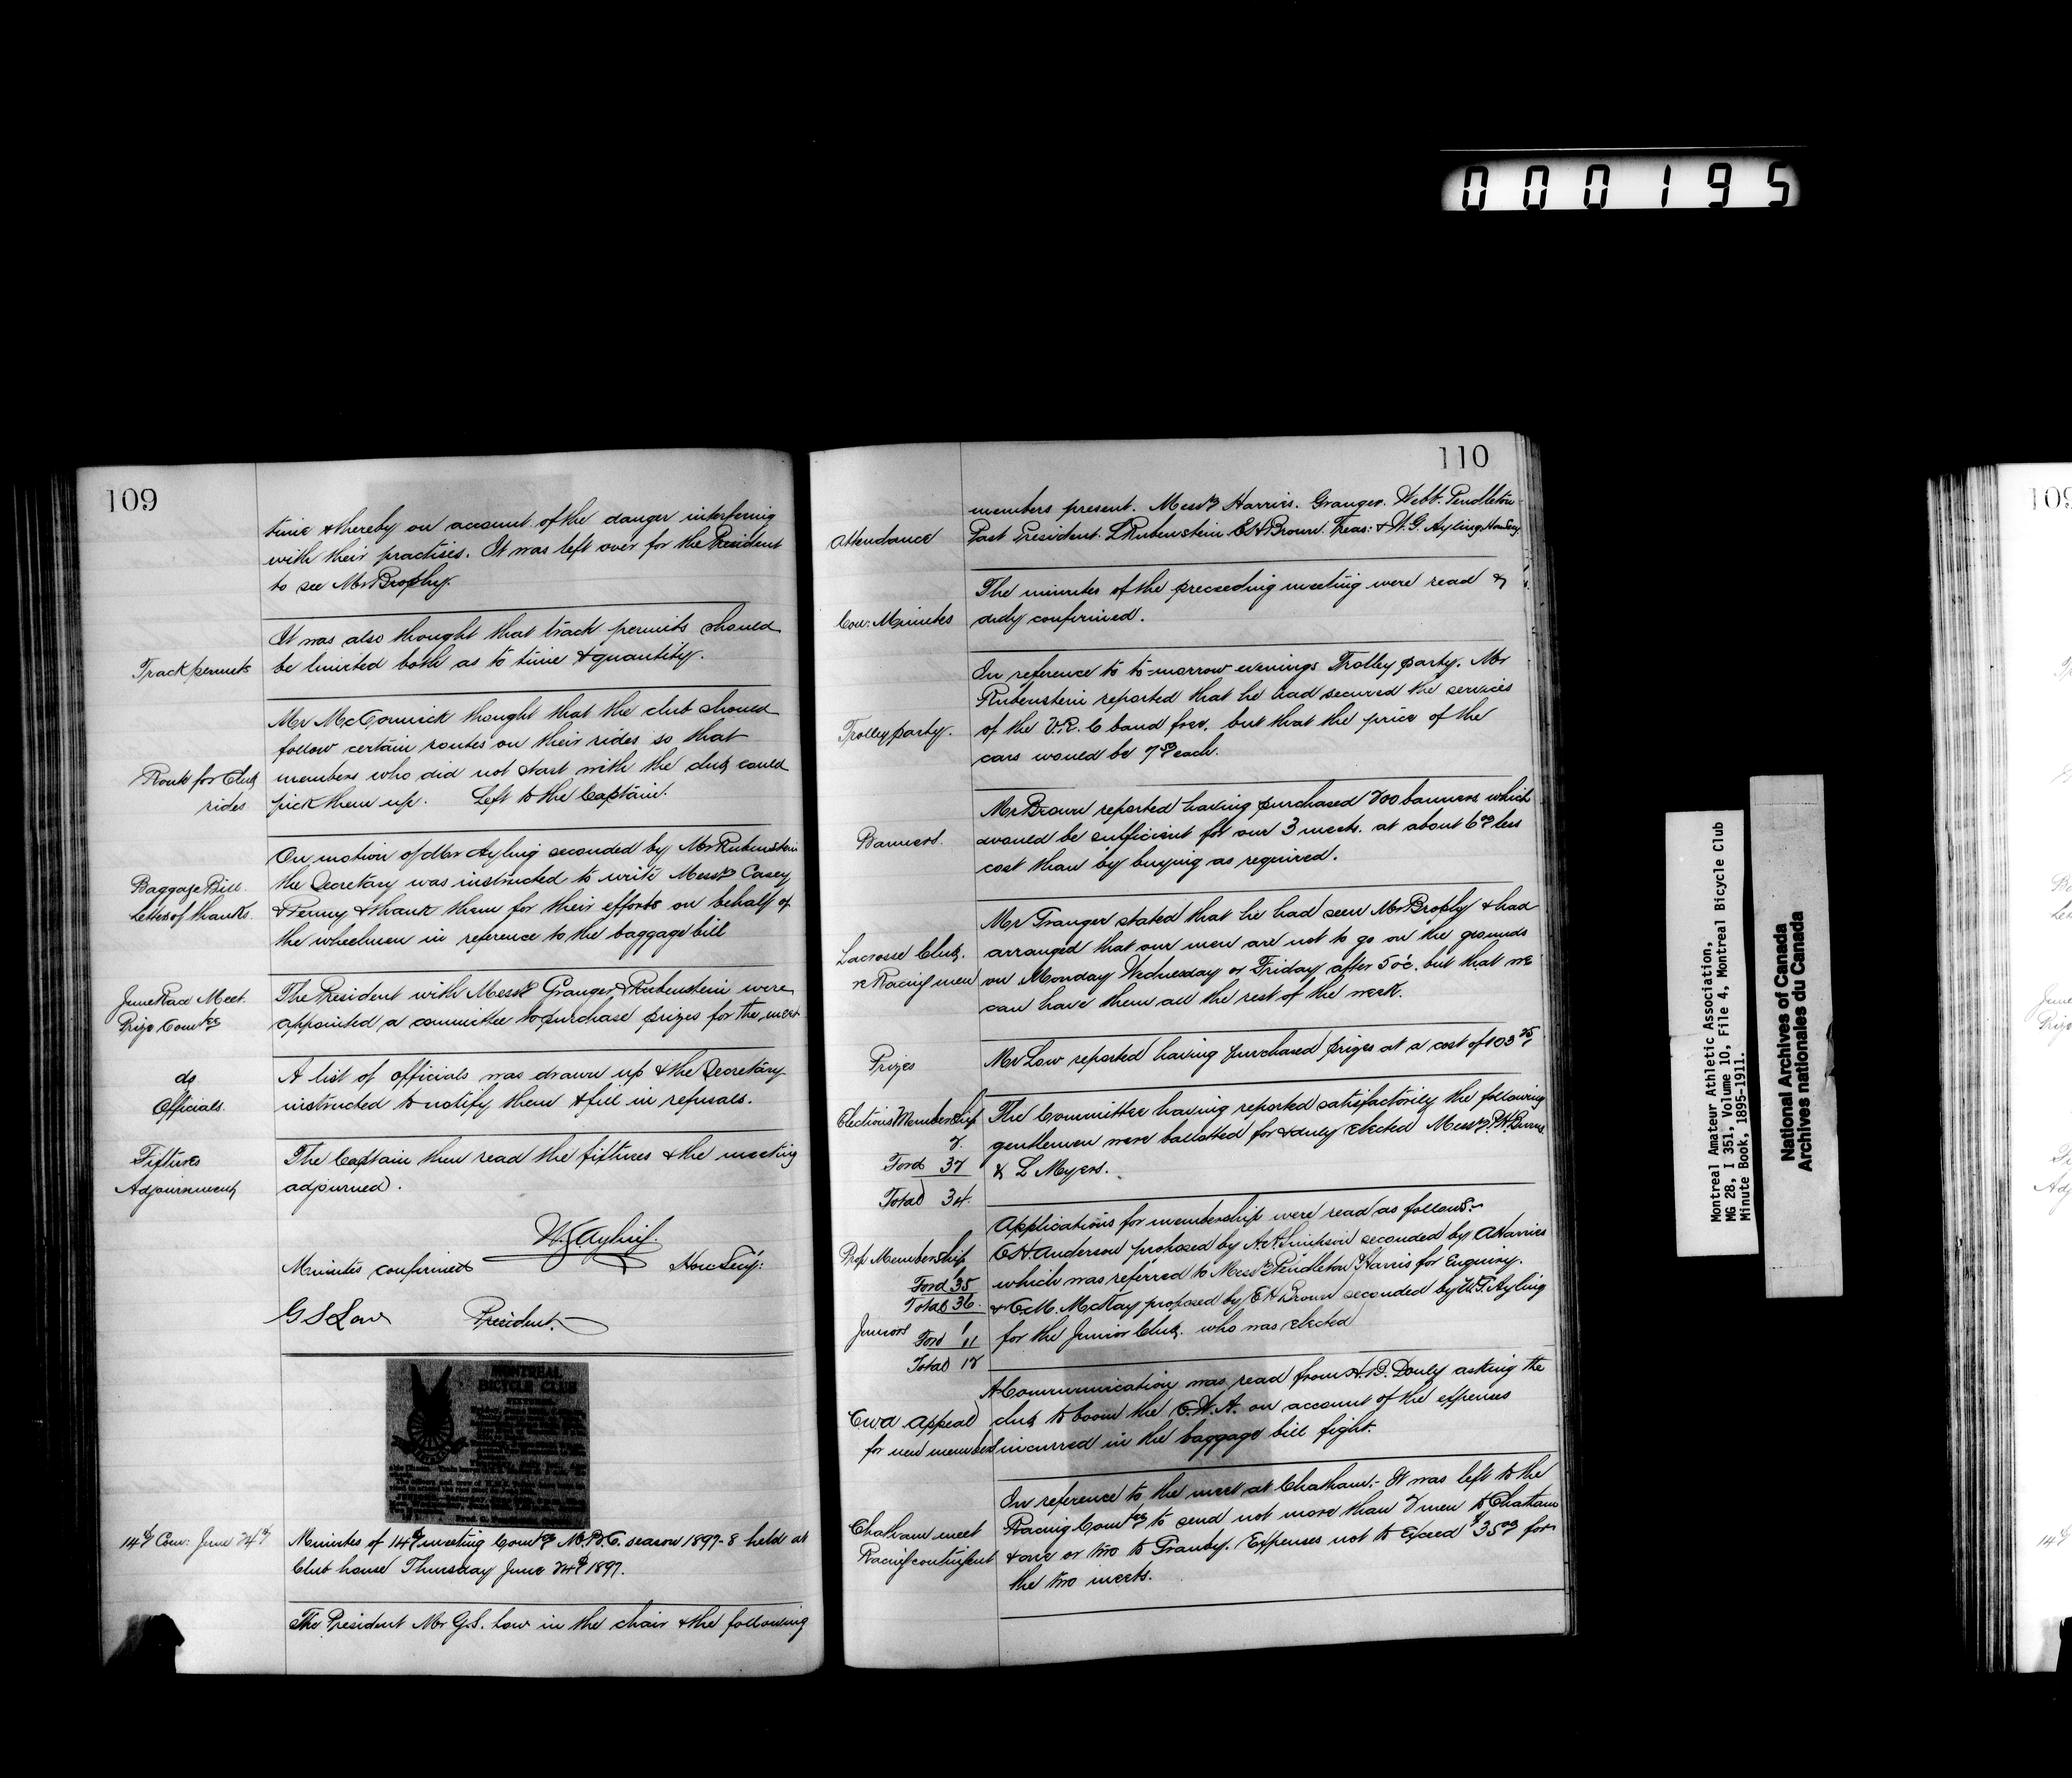 000195
109
time & thereby on account of the danger interfering
with their practises. It was left over for the President
to see Mr Brophy.
Track permits
It was also thought that track permits should
be limited both as to time & quantity.
Route for Club
rides
Mr McCormick thought that the club should
follow certain routes on their rides so that
members who did not start with the club could
pick them up. Left to the Captain.
Baggage Bill
Letter of thanks.
On motion of Mr Ayling seconded by Mr Rubenstein
the Secretary was instructed to write Messrs Casey
& Penny & thank them for their efforts on behalf of
the wheelmen in reference to the baggage bill
June Race Meet.
Prize Comtee
The President with Messrs Granger & Rubenstein were
appointed a committee to purchase prizes for the meet
do
Officials.
A list of officials was drawn up & the Secretary
instructed to notify them & fill in refusals.
Fixtures
Adjournment
The Captain then read the fixtures & the meeting
adjourned.
W.G. Ayling.
Minutes confirmed Hon Secy:
G S Low President.
MONTREAL
BICYCLE CLUB
14th Com: June 24th
Minutes of 14th meeting Comtee M.B.C. season 1897-8 held at
Club house Thursday June 24th 1897.
The President Mr G.S. Low in the chair & the following
110
Attendance
members present. Messrs Harries. Granger. Webb. Pendleton
Past President. L Rubenstein E H Brown. Treas: & W. G. Ayling Hon Secy.
Con: Minutes
The minutes of the preceeding meeting were read &
duly confirmed.
Trolley party.
In reference to to-morrow evenings Trolley party. Mr
Rubenstein reported that he had secured the services
of the V.R.C band free, but that the price of the
cars would be 7.50 each.
Banners.
Mr Brown reported having purchased 200 banners which
would be sufficient for our 3 meets. at about 6.00 less
cost than by buying as required.
Lacrosse Club.
re Racing men
Mr Granger stated that he had seen Mr Brophy & had
arranged that our men are not to go on the grounds
on Monday Wednesday or Friday after 5 oc. but that we
can have them all the rest of the week.
Prizes
Mr Low reported having purchased prizes at a cost of 103.25
Elections Membership
2.
Ford 32
Total 34.
The Committee having reported satisfactorily the following
gentlemen were ballotted for & duly elected Messrs P.H. Burns
& L Myers.
Prop Membership
1
Ford 35
Total 36.
Juniors
1
Ford 11
Total 12
Applications for membership were read as follows:-
C H. Anderson proposed by A.A. Simpson seconded by A Harries
which was referred to Messrs Pendleton & Harris for Enquiry.
& C.M. McKay proposed by E H Brown seconded by W.G. Ayling
for the Junior Club. who was elected
CWA Appeal
for new members
A Communication was read from H.B. Donly asking the
club to boom the C.W.A. on account of the expenses
incurred in the baggage bill fight.
Chatham meet
Racing contingent
In reference to the meet at Chatham:- It was left to the
Racing Comtee to send not more than 2 men to Chatham
& one or two to Granby. Expenses not to exceed $35.00 for
the two meets.
Montreal Amateur Athletic Association,
MG 28, I 351, Volume 10, File 4, Montreal Bicycle Club
Minute Book, 1895-1911.
National Archives of Canada
Archives nationales du Canada